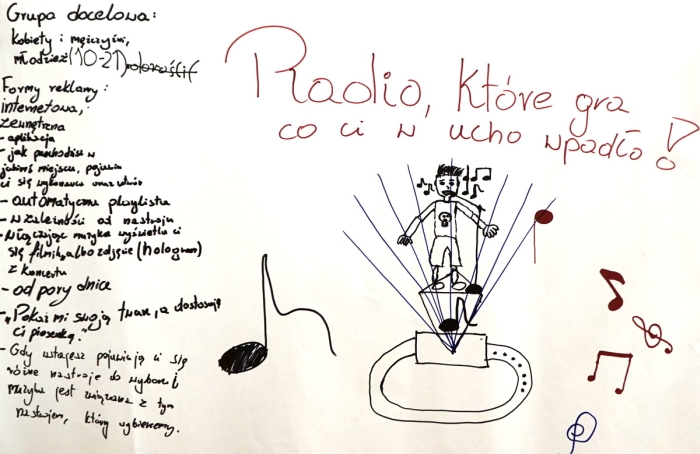 Grupa docelowa:
Kobiety i mężczyźni,
młodzież (10-21)
Formy reklamy:
internetowa,
zewnętrzna
- aplikacja
- jak przechodzisz w
jakimś miejscu, pojawia
ci się wykonawca oraz utwór
- automatyczna playlista
- w zależności od nastroju
- włączając muzykę wyświetla ci
się filmik albo zdjęcie (hologram)
z koncertu
- od pory dnice
- "Pokaż mi swoją twarz, a dostosuję
ci piosenkę."
- Gdy wstajesz pojawiają ci się
różne nastroje do wyboru i
muzyka jest związana z tym
nastrojem, który wybierzemy.
Radio, które gra
co ci w ucho wpadło!